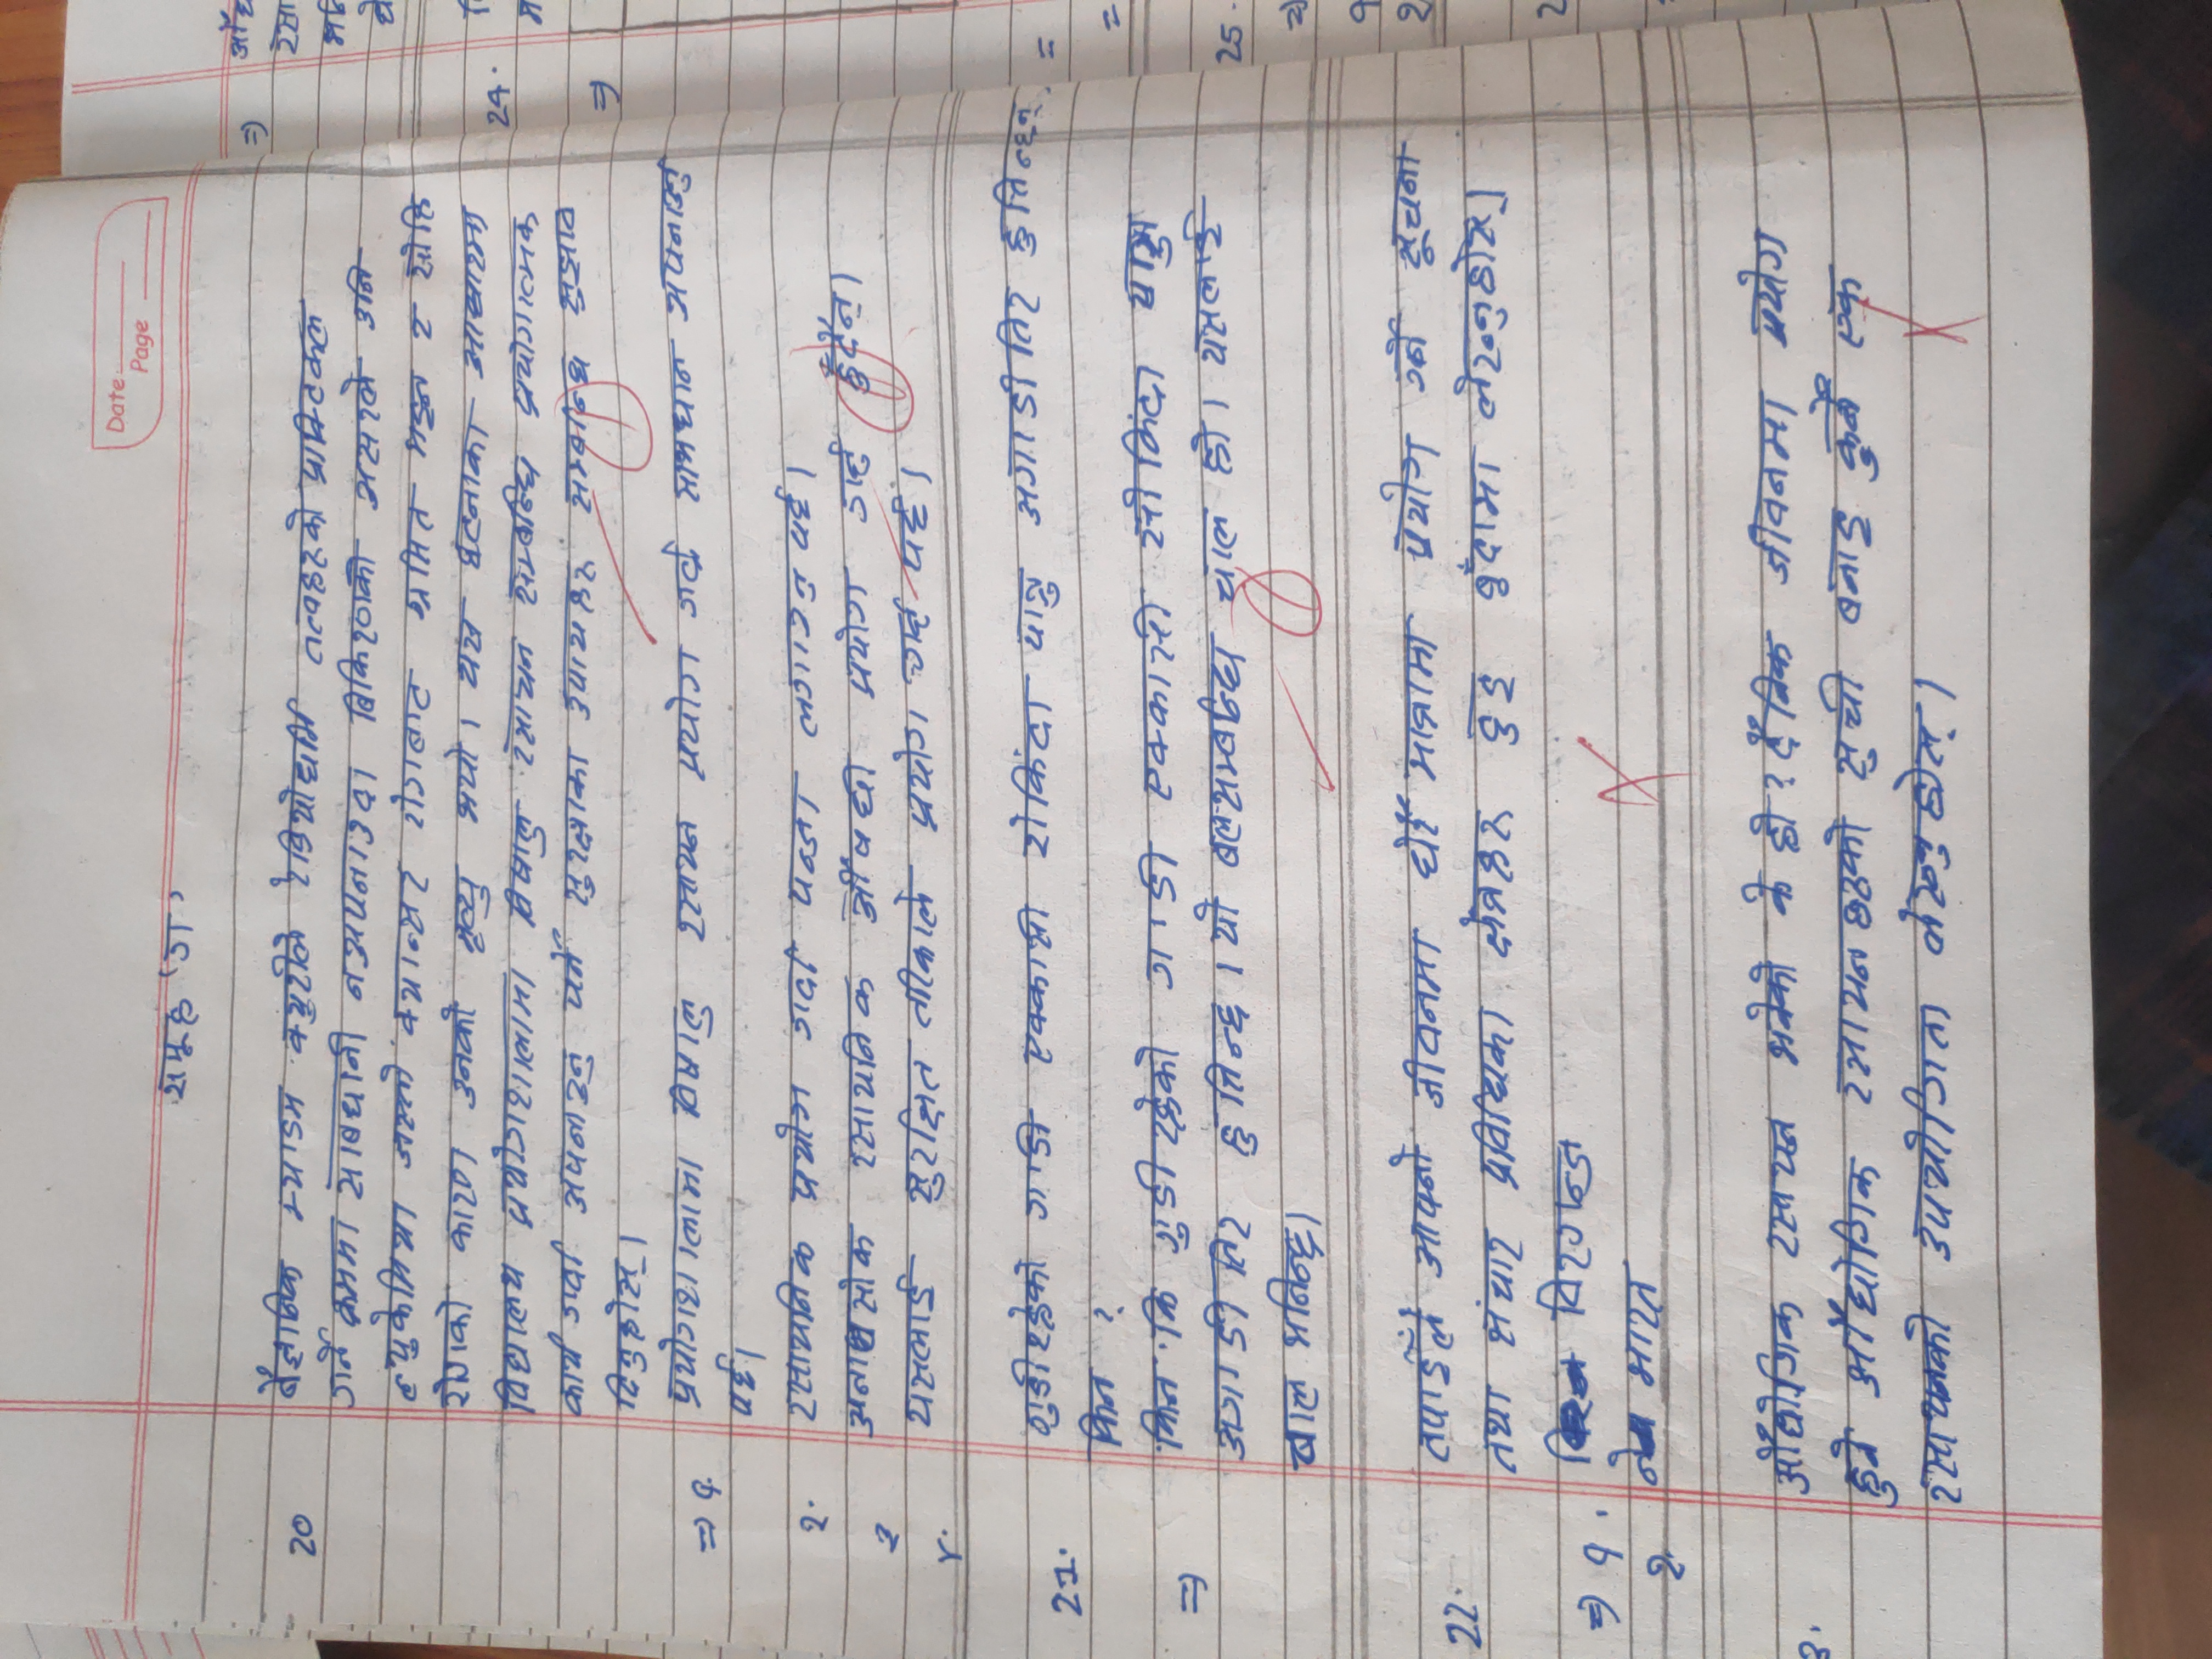 Date
Page
समूह 'ग'
20 बैज्ञानिक म्याडम क्युरीले रेडियोधार्मि तत्वहरुको प्राक्टिकल
गर्ने क्रममा साबधानी नअपनाउदा बिकिरणको असरले उनि
ल्युकेमिया जस्तो क्यान्सर रोगबाट ग्रसित भइन र सोहि
रोगको कारण उनको मृत्यु भयो। यस घटनाका आधारमा
विद्यालय प्रयोगशालामा विषालु रसायन सम्बन्धि प्रयोगात्मक
कार्य गर्दा अपनाउनु पर्ने सुरक्षाका उपायहरु सम्बन्धि सुझाव
दिनुहोस्।
⇒ १. प्रयोगशालामा विषालु रसायन प्रयोग गर्दा साभधान अपनाउनु
पर्छ।
२. रसायनिक प्रयोग गर्दा पन्जा लगाउनु पर्छ।
३ अनावसोक रसायनिक औंषधी प्रयोग गर्नु हुँदैन्।
४. यसलाई सुरक्षित तरिकाले प्रयोग गर्नु पर्छ।
21. गुडीरहेको गाडी एक्कासी रोकिंदा यात्रु अगाडीतिर हुत्तिन्छन्
किन ?
⇒ किन कि गुडीरहेको गाडी एक्कासी रोकिंदा यात्रु
अगाडीतिर हुत्तिन्छ। यो बलसम्बन्धि चाल हो। यसलाई
बाल भनिन्छ।
22. तपाईँले आफ्नो जीवनमा धेरै मात्रामा प्रयोग गर्ने सूचना
तथा संचार प्रविधिका क्षेत्रहरु दुइ बुँदामा लेख्नुहोस्।
⇒ १. विरगन्ज
२. भारत
3. औंद्योगिक रसायन भनेको के हो? दैनिक जीवनमा प्रयोग
हुने औंद्योगिक रसायनहरुको सुची बनाइ कुनै एक
रसायनको उपयोगिता लेख्नुहोस्।
⇒
24.
⇒
=
=
25.
१
२